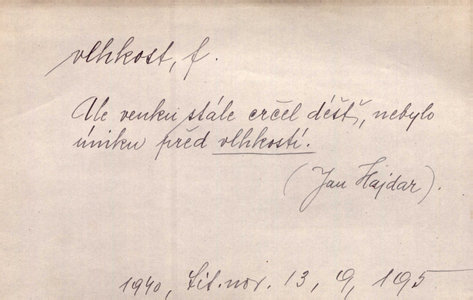 vlhkost, f.
Ale venku stále crčel déšť, nebylo
úniku před vlhkostí.
(Jan Hajdar).
1940, Lit. nov. 13, 9, 195